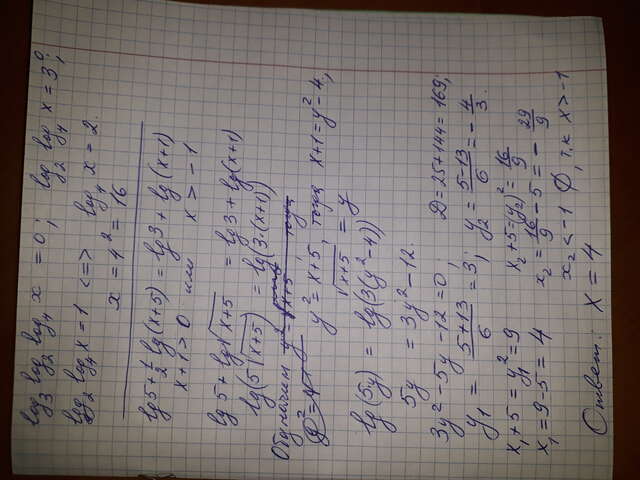 log₃ log₂ log₄ x = 0; log₂ log₄ x = 3⁰;
log₂ log₄ x = 1 <=> log₄ x = 2.
x = 4² = 16
lg 5 + 1/2 lg (x+5) = lg 3 + lg (x+1)
x+1 > 0 или x > -1
lg 5 + lg √x+5 = lg 3 + lg (x+1)
lg (5√x+5) = lg (3·(x+1))
Обозначим y² = x+5, тогда
y² = x+5, тогда x+1 = y² - 4,
√x+5 = y
lg (5y) = lg (3(y²-4))
5y = 3y² - 12.
3y² - 5y - 12 = 0; D = 25 + 144 = 169;
y₁ = 5+13/6 = 3; y₂ = 5-13/6 = - 4/3.
x₁ + 5 = y₁² = 9 x₂ + 5 = (y₂)² = 16/9
x₁ = 9 - 5 = 4 x₂ = 16/9 - 5 = - 29/9
x₂ < -1 ∅, т.к x > -1
Ответ: x = 4